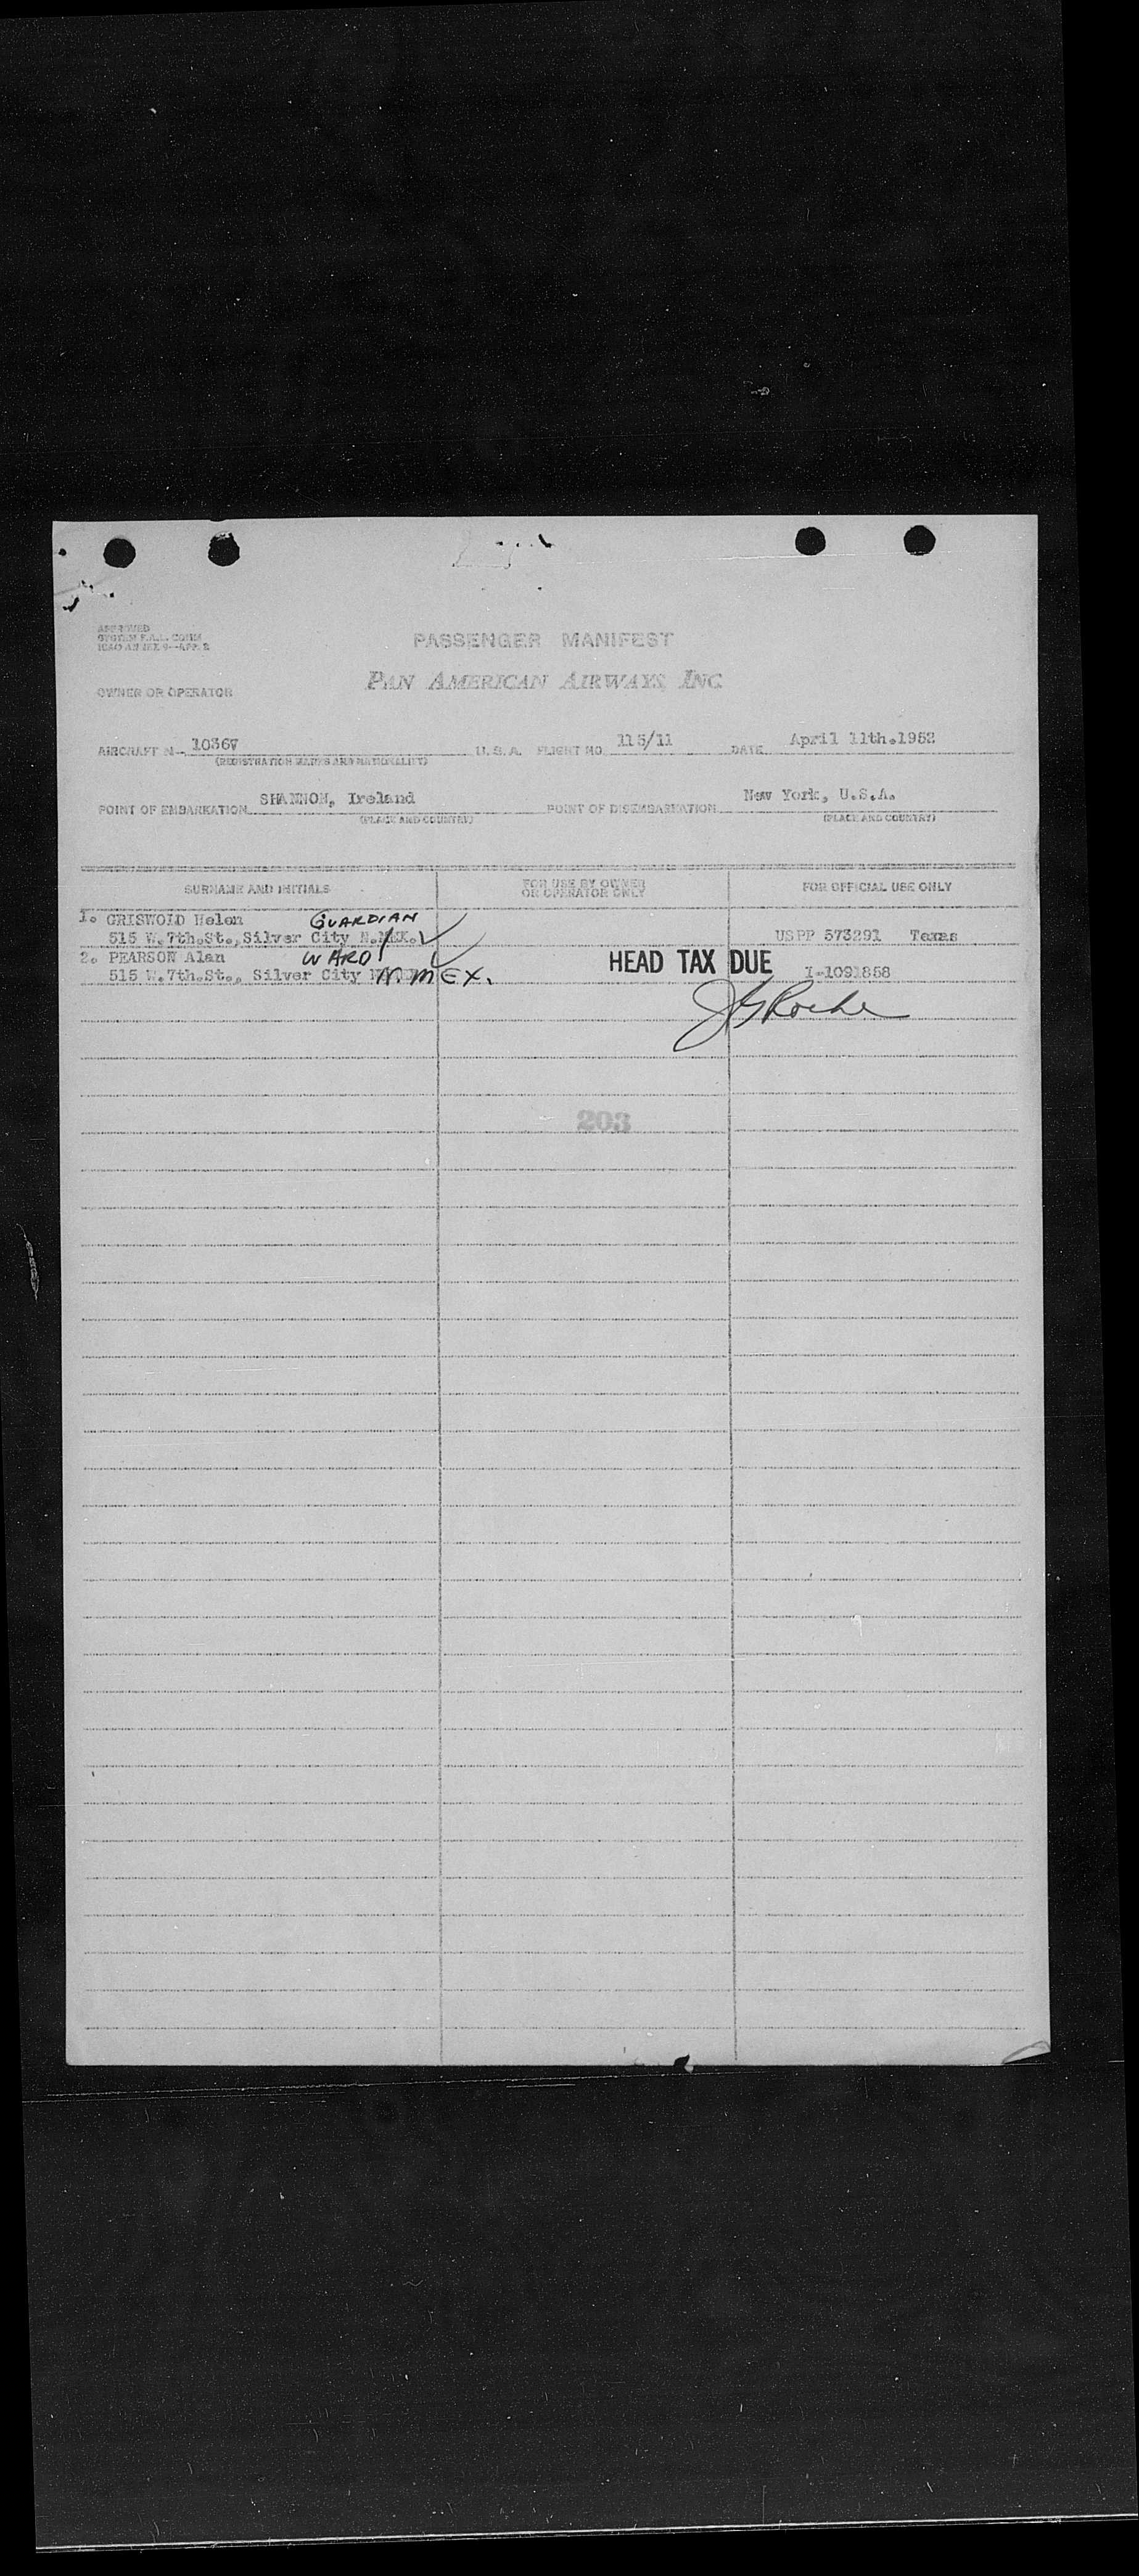 APPROVED
SYSTEM F.A.L. COMM
ICAO ANNEX 9—APP. 2
PASSENGER MANIFEST
PAN AMERICAN AIRWAYS, INC.
OWNER OR OPERATOR
AIRCRAFT N- 1036V U. S. A. FLIGHT NO. 115/11 DATE April 11th.1952
(REGISTRATION MARKS AND NATIONALITY)
POINT OF EMBARKATION SHANNON, Ireland POINT OF DISEMBARKATION New York, U.S.A.
(PLACE AND COUNTRY) (PLACE AND COUNTRY)
SURNAME AND INITIALS FOR USE BY OWNER OR OPERATOR ONLY FOR OFFICIAL USE ONLY
1. GRISWOLD Helen GUARDIAN
515 W.7th.St.,Silver City N.MEX. USPP 573291 Texas
2. PEARSON Alan WARD HEAD TAX DUE
515 W.7th.St., Silver City N.MEX. I-1091858
JG Roche
203